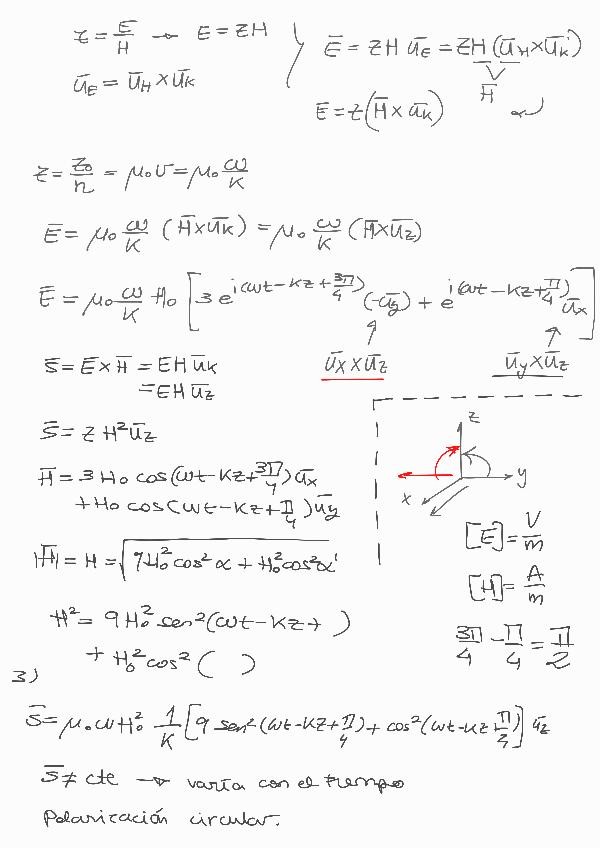 z = E/H → E = ZH
ū_E = ū_H × ū_K
Ē = ZH ū_E = ZH (ū_H × ū_K)
H̄
Ē = z (H̄ × ū_K)
z = Z₀/n = μ₀ v = μ₀ ω/K
Ē = μ₀ ω/K (H̄ × ū_K) = μ₀ ω/K (H̄ × ū_z)
Ē = μ₀ ω/K H₀ [3 e^{i(ωt-Kz+3π/4)} (-ū_y) + e^{i(ωt-Kz+π/4)} ū_x]
ū_x × ū_z
ū_y × ū_z
S̄ = Ē × H̄ = EH ū_K
= EH ū_z
S̄ = Z H² ū_z
H̄ = 3 H₀ cos(ωt-Kz+3π/4) ū_x
+ H₀ cos(ωt-Kz+π/4) ū_y
z
y
x
[E] = V/m
|H̄| = H = √(9H₀² cos² α + H₀² cos² α')
[H] = A/m
H² = 9 H₀² sen² (ωt-Kz+ )
+ H₀² cos² ( )
3π/4 - π/4 = π/2
3)
S̄ = μ₀ ω H₀² 1/K [9 sen² (ωt-Kz+π/4) + cos² (ωt-Kz+π/4)] ū_z
S̄ ≠ cte → varía con el tiempo
Polarización circular.